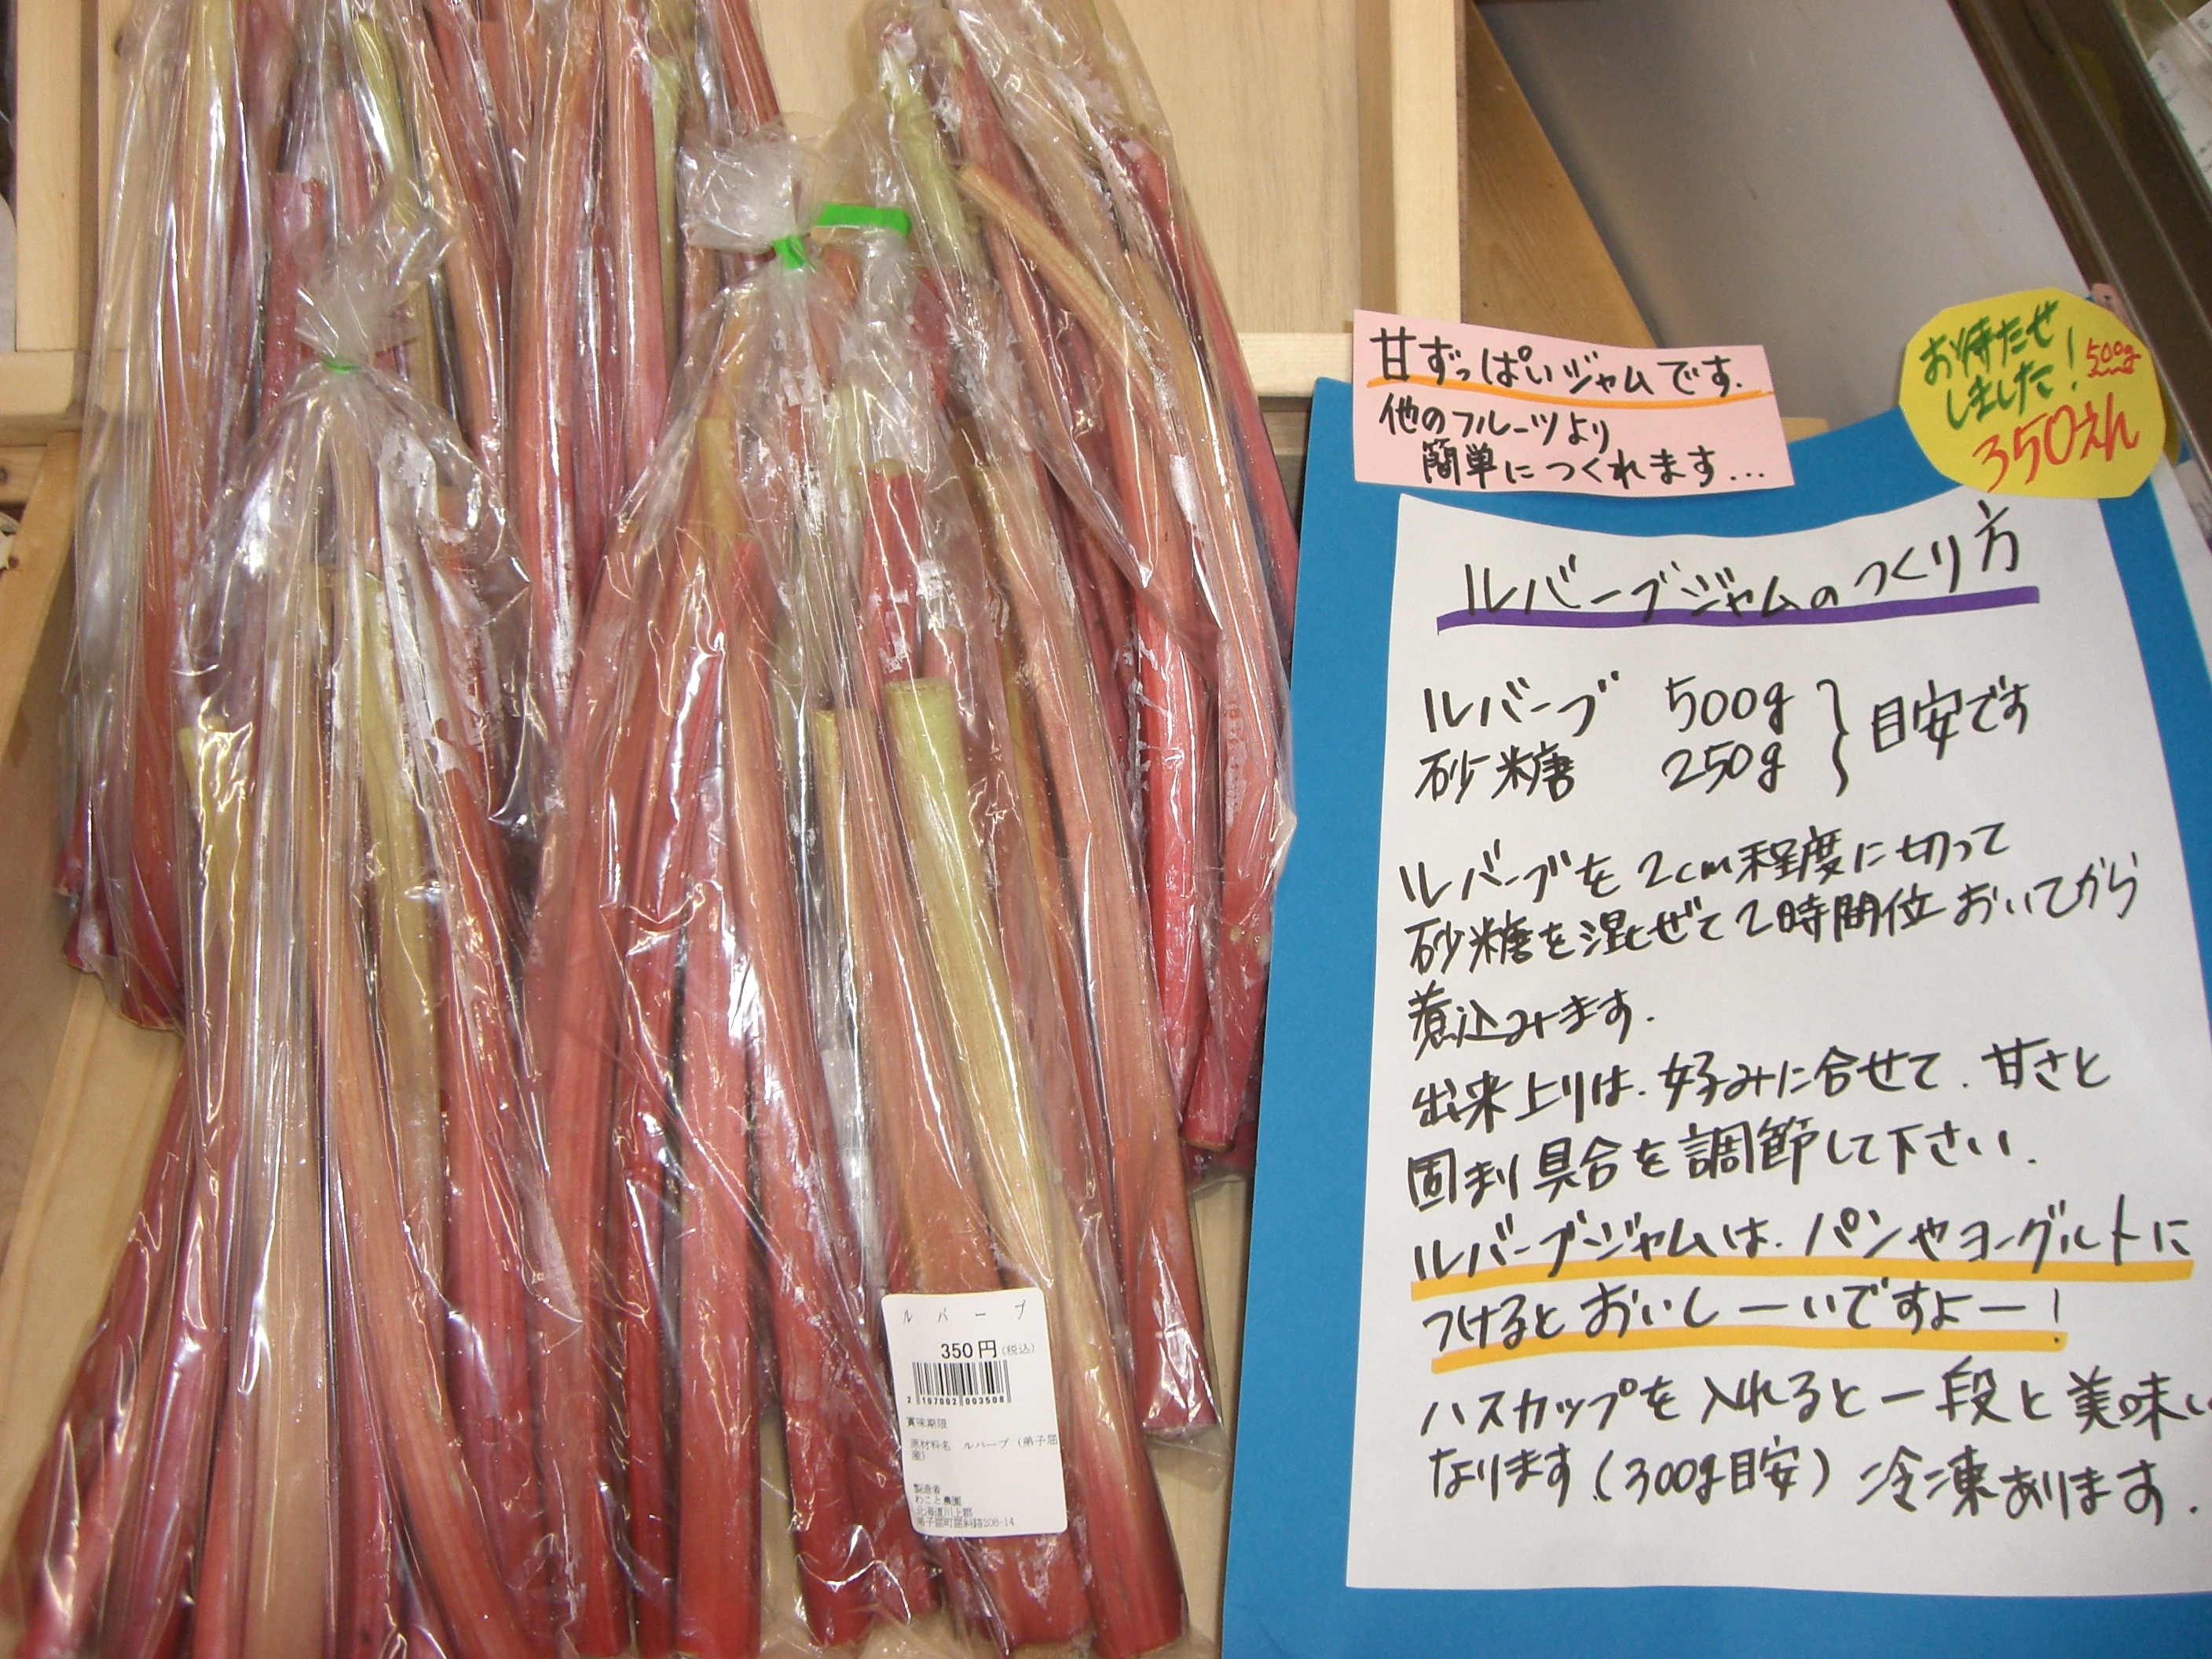 甘ずっぱいジャムです.
他のフルーツより
簡単につくれます...
お待たせ
しました!
500g
350えん
ルバーブジャムのつくり方
ルバーブ 500g
砂糖 250g
目安です
ルバーブを2cm程度に切って
砂糖を混ぜて2時間位おいてから
煮込みます.
出来上りは.好みに合せて.甘さと
固まり具合を調節して下さい.
ルバーブジャムは.パンやヨーグルトに
つけるとおいしーいですよー!
ハスカップを入れると一段と美味い
なります.(300g目安) 冷凍あります.
ルバーブ
350円(税込)
2 197002 003508
賞味期限
原材料名 ルバーブ(弟子屈
産)
製造者
わこと農園
北海道川上郡
弟子屈町屈斜路208-14